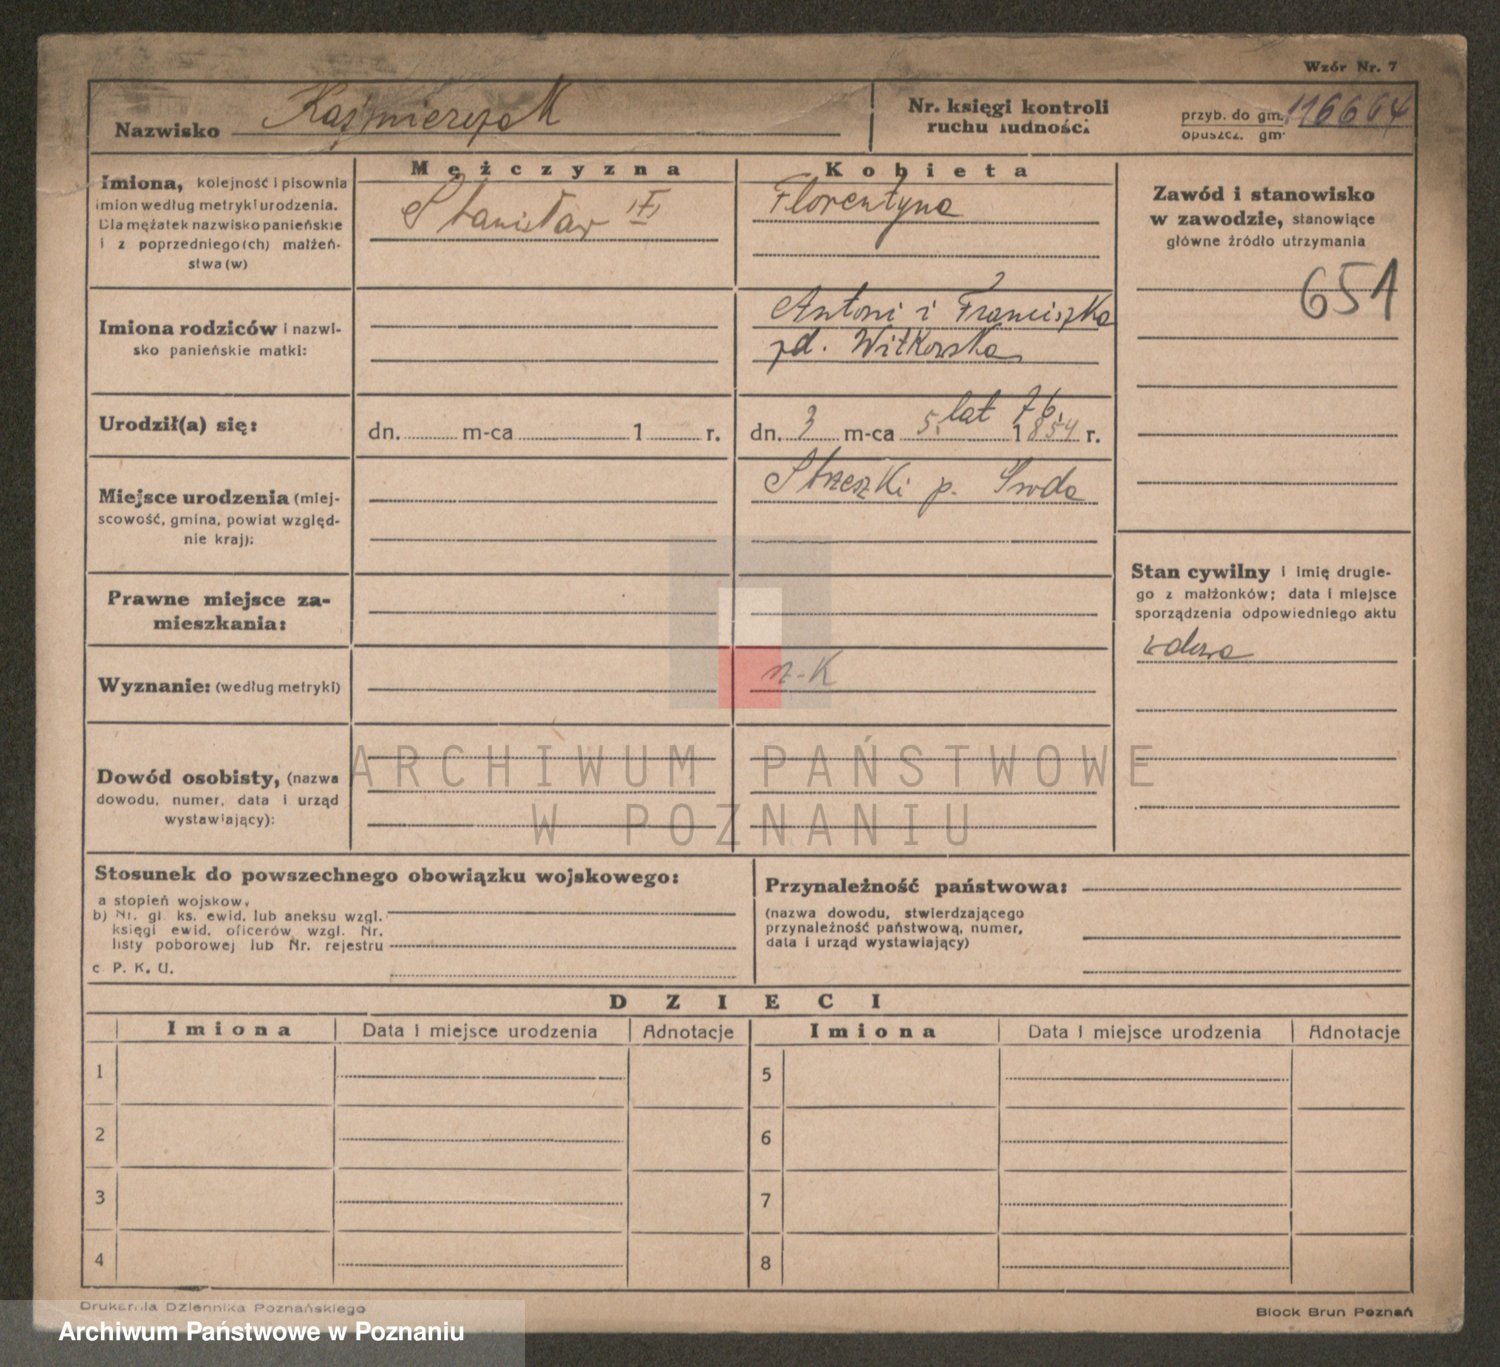 Wzór Nr. 7
Nazwisko Kaźmierczak
Nr. księgi kontroli
ruchu ludności
przyb. do gm. 116664
opuszcz. gm.
Mężczyzna
Kobieta
Imiona, kolejność i pisownia
imion według metryki urodzenia.
Dla mężatek nazwisko panieńskie
i z poprzedniego(ch) małżeń-
stwa(w)
Stanisław
Florentyna
Zawód i stanowisko
w zawodzie, stanowiące
główne źródło utrzymania
651
Imiona rodziców i nazwi-
sko panieńskie matki:
Antoni i Franciszka
zd. Witkowska
Urodził(a) się:
dn. m-ca 1 r.
lat 76.
dn. 3 m-ca 5. 1854 r.
Miejsce urodzenia (miej-
scowość, gmina, powiat względ-
nie kraj):
Strzeszki p. Środa
Stan cywilny i imię drugie-
go z małżonków; data i miejsce
sporządzenia odpowiedniego aktu
wdowa
Prawne miejsce za-
mieszkania:
Wyznanie: (według metryki)
rz-k
Dowód osobisty, (nazwa
dowodu, numer, data i urząd
wystawiający):
ARCHIWUM PAŃSTWOWE
W POZNANIU
Stosunek do powszechnego obowiązku wojskowego:
a stopień wojskow.
b) Nr. gł. ks. ewid. lub aneksu wzgl.
księgi ewid. oficerów wzgl. Nr.
listy poborowej lub Nr. rejestru
c P. K. U.
Przynależność państwowa:
(nazwa dowodu, stwierdzającego
przynależność państwową, numer,
data i urząd wystawiający)
DZIECI
Imiona Data i miejsce urodzenia Adnotacje Imiona Data i miejsce urodzenia Adnotacje
1 5
2 6
3 7
4 8
Drukarnia Dziennika Poznańskiego
Block Brun Poznań
Archiwum Państwowe w Poznaniu